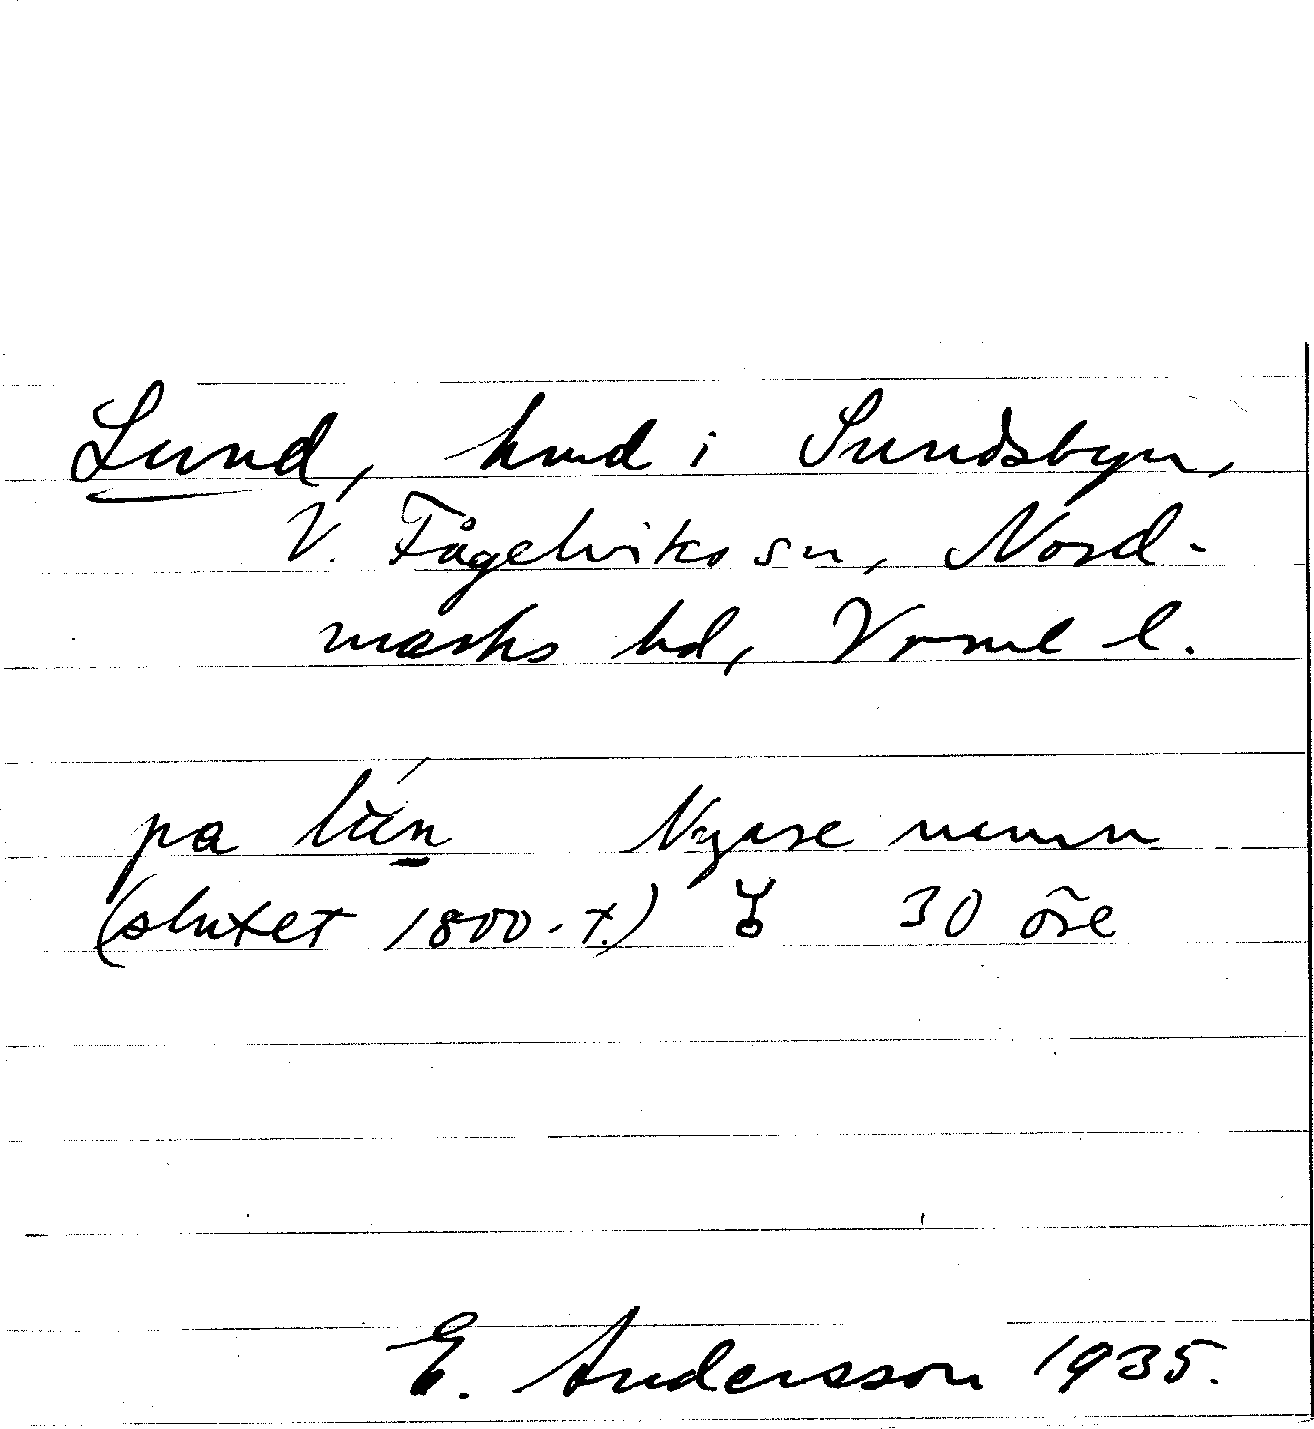 Lund, hmd i Sundsbyn,
V. Fågelviks sn, Nord-
marks hd, Vrml l.
pa
Nyare namn
(slutet 1800-t.) 30 öre
E. Andersson 1935.